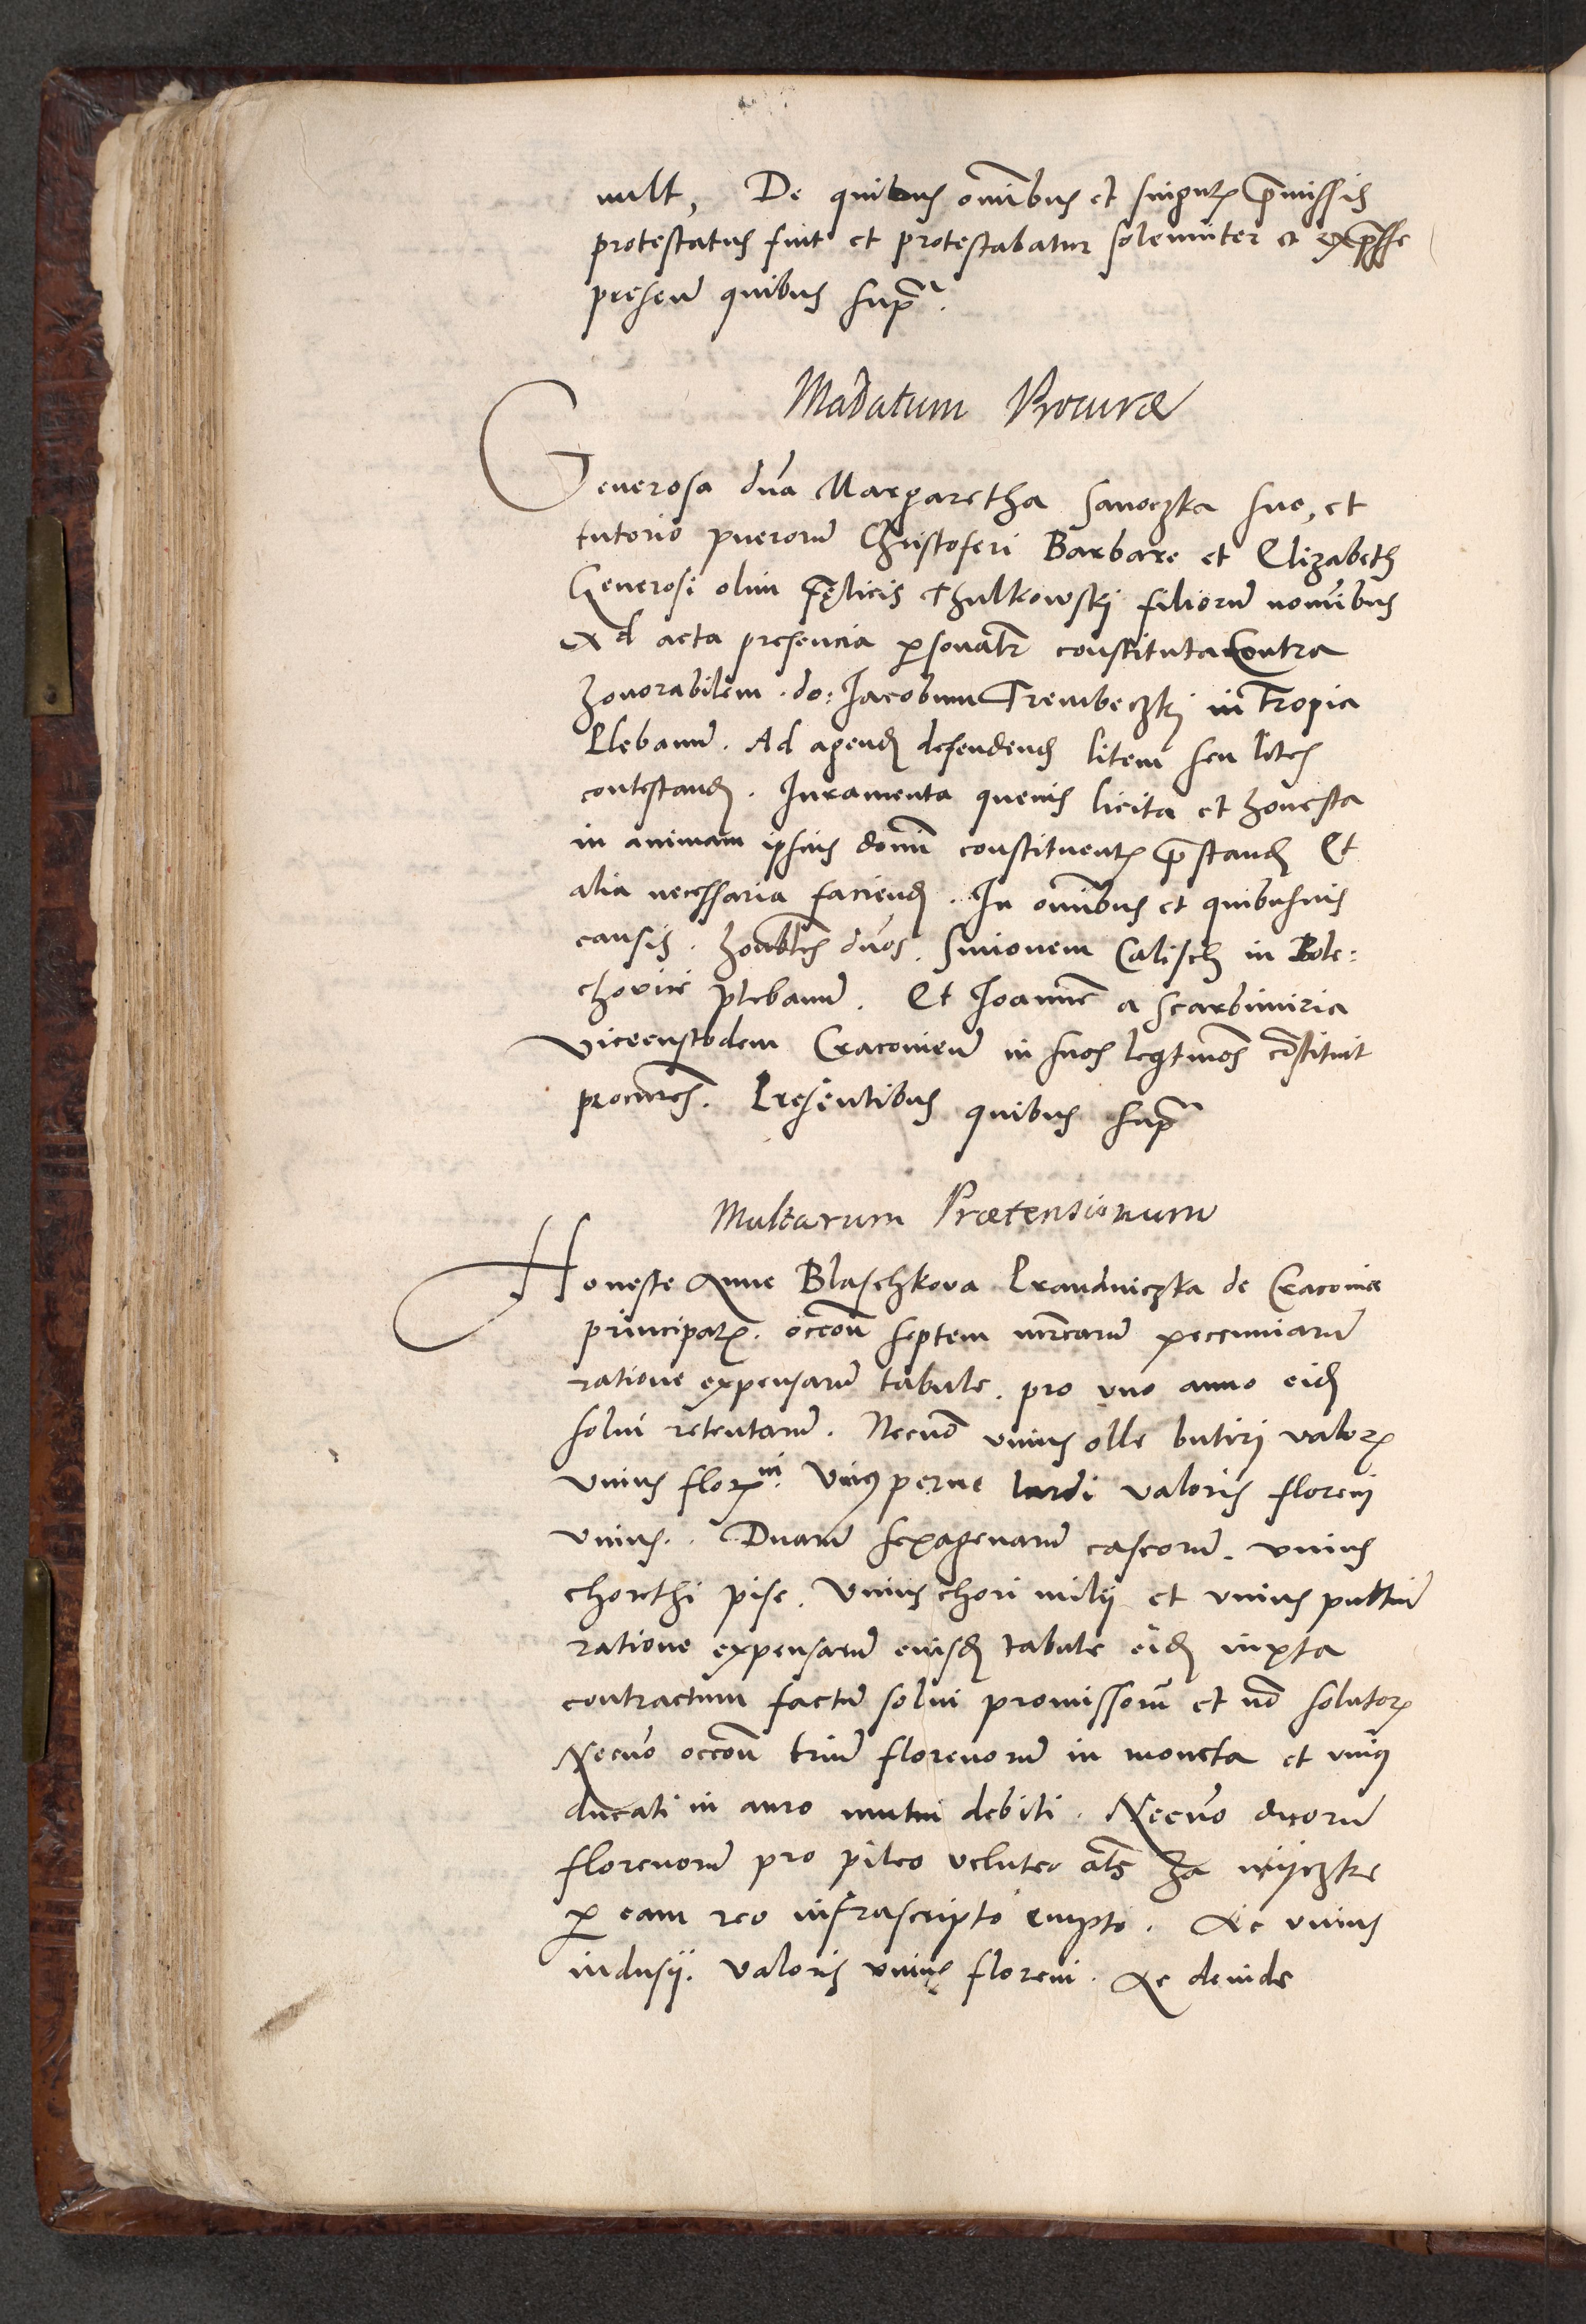 vult, De quibus omībus et singulꝝ p̄missis
protestatus fuit et protestabatur solenniter et exp̄sse
presen̄ quibus supᵃ.
Mādatum Procuræ
Generosa dn̄a Margaretha Sanoczka suo, et
tutorio puerorū Christoferi Barbare et Elizabeth
Generosi olim Fęlicis Thzulkowskj filiorū nomībus
Ad acta presencia ꝑsonalr̄ constituta Contra
honorabilem . do: Jacobum Trembeczkj in Tropia
Plebanū. Ad agendꝫ defendendꝫ litem seu lites
contestandꝫ. Juramenta quevis licita et honesta
in animam ipsius domī constituentꝭ p̄standꝫ Et
alia necessaria faciendꝫ. In omībus et quibusvis
causis . honbles dn̄os. Simonem Calisch in Bole:
chovice plebanū. Et Joannē a Scarbimiria
vicecustodem Cracovien̄ in suos legtimos cōstituit
procurēs. Presentibus quibus supᵃ
Multarum Prætensionum
Honeste Anne Blaschkova Prandniczka de Cracovia
principalꝭ. occōn̄ septem mrcarū peccuniarū
ratione expensarū tabule. pro vno anno eidꝫ
solui retentarū. Necnō vnius olle butiri valorꝭ
vnius florꝭⁿⁱ. Vniꝰ perne lardi valoris florenj
vnius. Duarū sexagenarū caseorū. vnius
chorethi pise. Vnius chori milij et vnius pultiū
ratione expensarū eiusdꝫ tabule eidꝫ iuxta
contractum factū solui promissorū et nō solutorꝝ
Necno occōn̄ triū florenorū in moneta et vniꝰ
ducati in auro mutui debiti. Necno duorū
florenorū pro pileo veluteo als za myczke
ꝑ eam reo infrascripto empto. Ac vnius
indusij. valoris vnius floreni. Ac deinde